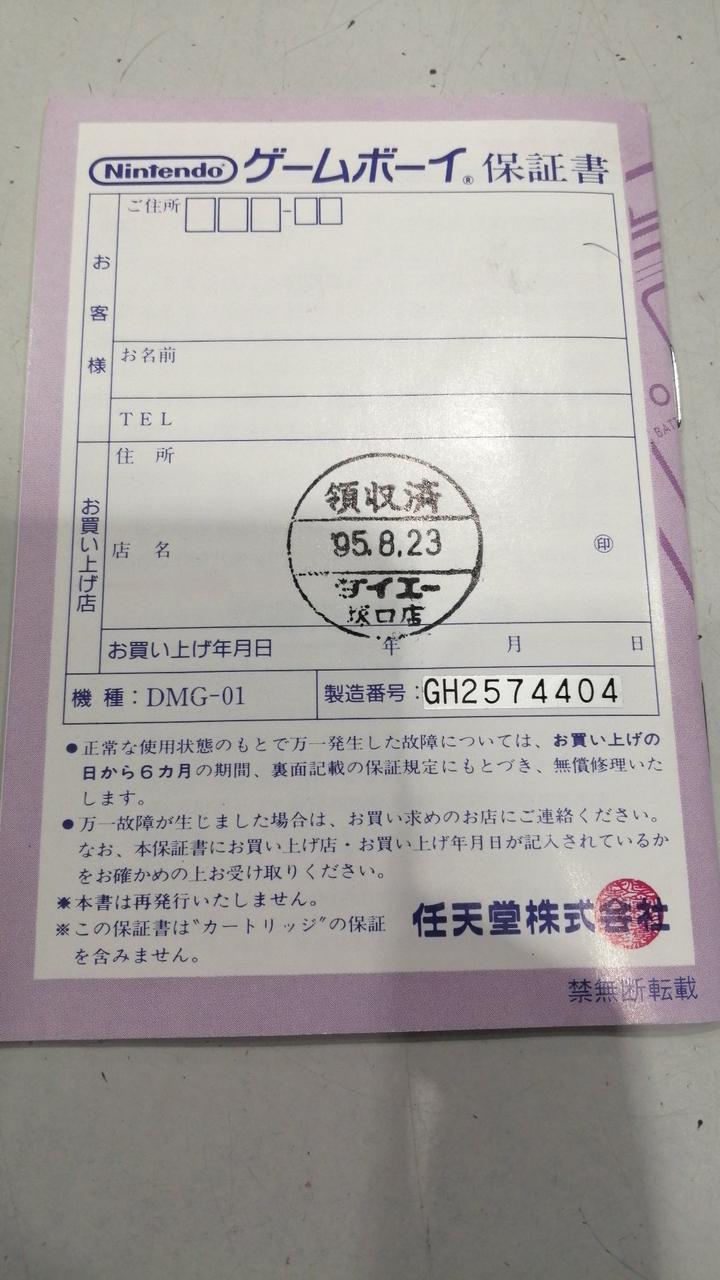 Nintendo® ゲームボーイ® 保証書
お客様
ご住所
お名前
TEL
お買い上げ店
住所
領収済
'95.8.23
ダイエー
塚口店
店名
印
お買い上げ年月日 年 月 日
機種：DMG-01 製造番号：GH2574404
●正常な使用状態のもとで万一発生した故障については、お買い上げの
日から6カ月の期間、裏面記載の保証規定にもとづき、無償修理いた
します。
●万一故障が生じました場合は、お買い求めのお店にご連絡ください。
なお、本保証書にお買い上げ店・お買い上げ年月日が記入されているか
をお確かめの上お受け取りください。
※本書は再発行いたしません。
※この保証書は"カートリッジ"の保証
を含みません。
任天堂株式会社
禁無断転載